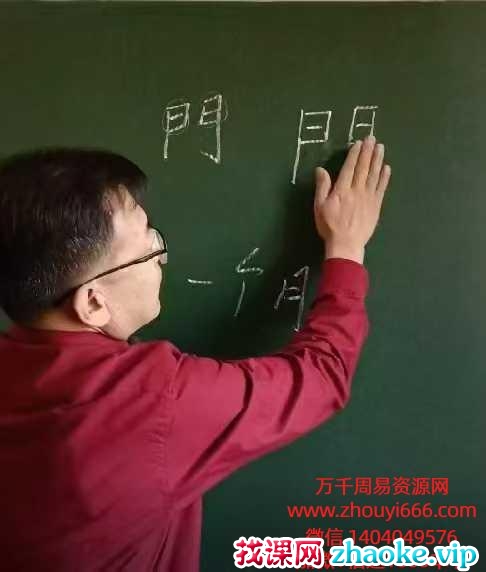 門 門
一个月
万千周易资源网
www.zhouyi666.com
微信 1404049576
找课网zhaoke.vip